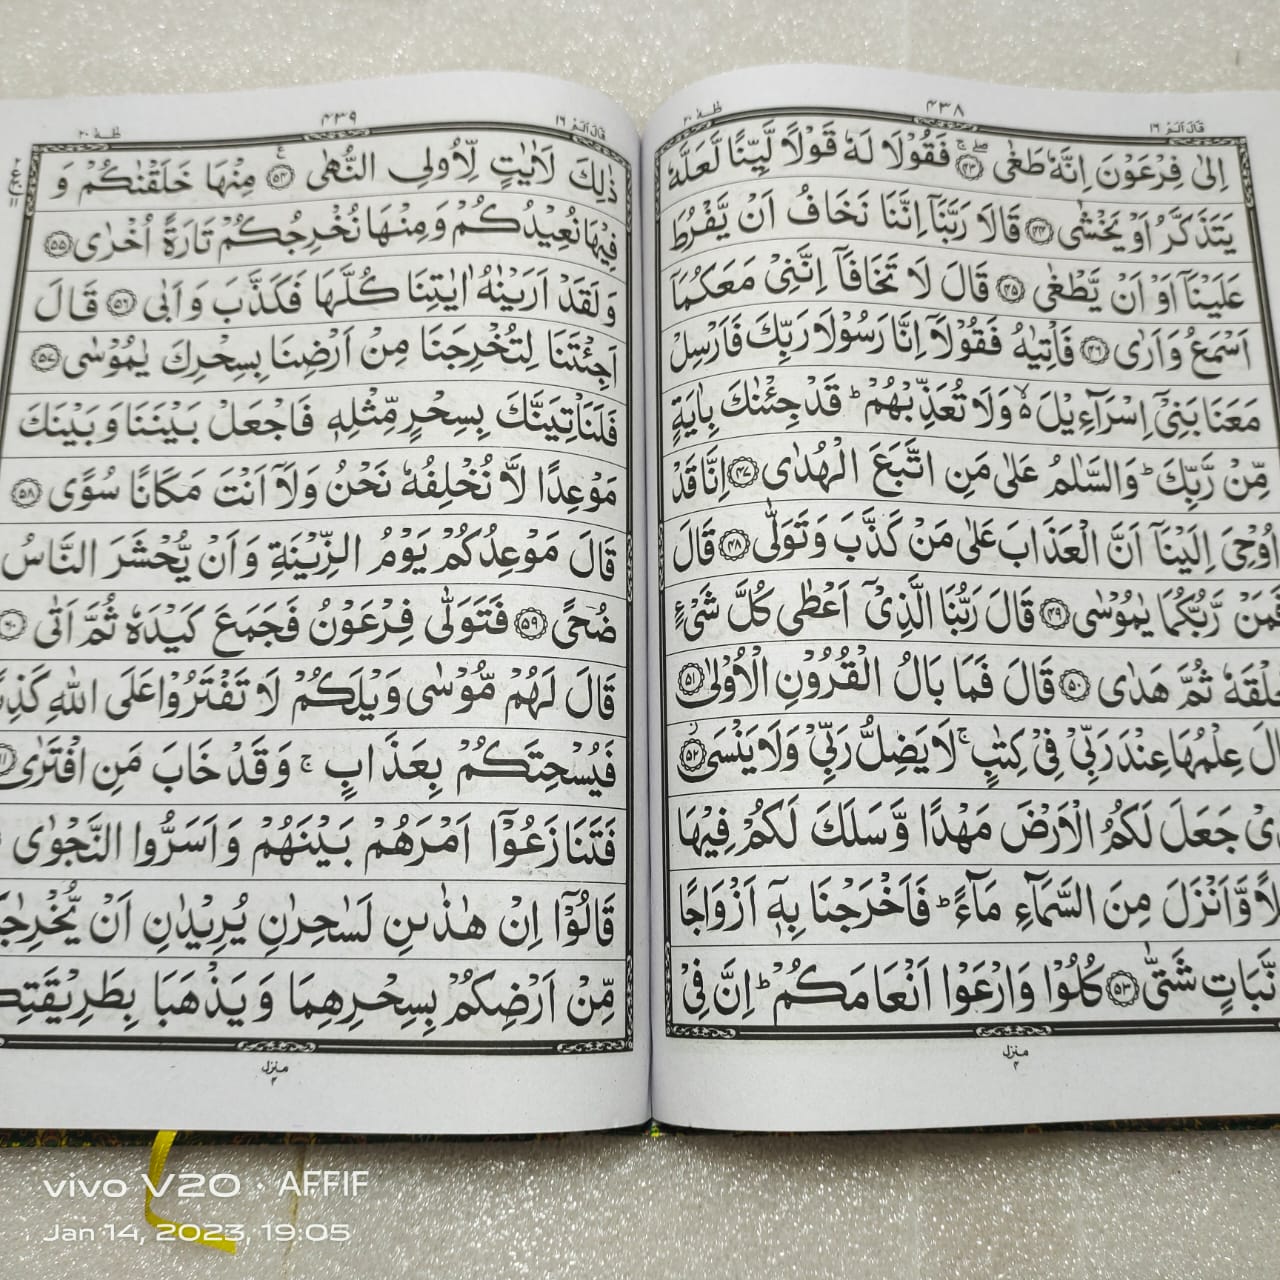 قَالَ اَلَمْ ۱۶
۴۳۸
طٰهٰ ۲۰
اِلٰى فِرْعَوْنَ اِنَّهٗ طَغٰى ﴿۴۳﴾ فَقُوْلَا لَهٗ قَوْلًا لَّيِّنًا لَّعَلَّهٗ
يَتَذَكَّرُ اَوْ يَخْشٰى ﴿۴۴﴾ قَالَا رَبَّنَاۤ اِنَّنَا نَخَافُ اَنْ يَّفْرُطَ
عَلَيْنَاۤ اَوْ اَنْ يَّطْغٰى ﴿۴۵﴾ قَالَ لَا تَخَافَاۤ اِنَّنِيْ مَعَكُمَاۤ
اَسْمَعُ وَاَرٰى ﴿۴۶﴾ فَاْتِيٰهُ فَقُوْلَاۤ اِنَّا رَسُوْلَا رَبِّكَ فَاَرْسِلْ
مَعَنَا بَنِيْۤ اِسْرَآءِيْلَ ۙ۬ وَلَا تُعَذِّبْهُمْ ؕ قَدْ جِئْنٰكَ بِاٰيَةٍ
مِّنْ رَّبِّكَ ؕ وَالسَّلٰمُ عَلٰى مَنِ اتَّبَعَ الْهُدٰى ﴿۴۷﴾ اِنَّا قَدْ
اُوْحِيَ اِلَيْنَاۤ اَنَّ الْعَذَابَ عَلٰى مَنْ كَذَّبَ وَتَوَلّٰى ﴿۴۸﴾ قَالَ
فَمَنْ رَّبُّكُمَا يٰمُوْسٰى ﴿۴۹﴾ قَالَ رَبُّنَا الَّذِيْۤ اَعْطٰى كُلَّ شَيْءٍ
خَلْقَهٗ ثُمَّ هَدٰى ﴿۵۰﴾ قَالَ فَمَا بَالُ الْقُرُوْنِ الْاُوْلٰى ﴿۵۱﴾
قَالَ عِلْمُهَا عِنْدَ رَبِّيْ فِيْ كِتٰبٍ ۚ لَا يَضِلُّ رَبِّيْ وَلَا يَنْسَى ﴿۵۲﴾
جَعَلَ لَكُمُ الْاَرْضَ مَهْدًا وَّسَلَكَ لَكُمْ فِيْهَا
وَّاَنْزَلَ مِنَ السَّمَآءِ مَآءً ؕ فَاَخْرَجْنَا بِهٖۤ اَزْوَاجًا
نَّبَاتٍ شَتّٰى ﴿۵۳﴾ كُلُوْا وَارْعَوْا اَنْعَامَكُمْ ؕ اِنَّ فِيْ
منزل ۴
قَالَ اَلَمْ ۱۶
۴۳۹
طٰهٰ ۲۰
ذٰلِكَ لَاٰيٰتٍ لِّاُولِى النُّهٰى ﴿۵۴﴾ مِنْهَا خَلَقْنٰكُمْ وَ
فِيْهَا نُعِيْدُكُمْ وَمِنْهَا نُخْرِجُكُمْ تَارَةً اُخْرٰى ﴿۵۵﴾
وَلَقَدْ اَرَيْنٰهُ اٰيٰتِنَا كُلَّهَا فَكَذَّبَ وَاَبٰى ﴿۵۶﴾ قَالَ
اَجِئْتَنَا لِتُخْرِجَنَا مِنْ اَرْضِنَا بِسِحْرِكَ يٰمُوْسٰى ﴿۵۷﴾
فَلَنَاْتِيَنَّكَ بِسِحْرٍ مِّثْلِهٖ فَاجْعَلْ بَيْنَنَا وَبَيْنَكَ
مَوْعِدًا لَّا نُخْلِفُهٗ نَحْنُ وَلَاۤ اَنْتَ مَكَانًا سُوًى ﴿۵۸﴾
قَالَ مَوْعِدُكُمْ يَوْمُ الزِّيْنَةِ وَاَنْ يُّحْشَرَ النَّاسُ
ضُحًى ﴿۵۹﴾ فَتَوَلّٰى فِرْعَوْنُ فَجَمَعَ كَيْدَهٗ ثُمَّ اَتٰى ﴿۶۰﴾
قَالَ لَهُمْ مُّوْسٰى وَيْلَكُمْ لَا تَفْتَرُوْا عَلَى اللّٰهِ
فَيُسْحِتَكُمْ بِعَذَابٍ ۚ وَقَدْ خَابَ مَنِ افْتَرٰى ﴿۶۱﴾
فَتَنَازَعُوْۤا اَمْرَهُمْ بَيْنَهُمْ وَاَسَرُّوا النَّجْوٰى
قَالُوْۤا اِنْ هٰذٰىنِ لَسٰحِرٰنِ يُرِيْدٰنِ اَنْ
مِّنْ اَرْضِكُمْ بِسِحْرِهِمَا وَيَذْهَبَا
منزل ۴
vivo V20 · AFFIF
Jan 14, 2023, 19:05